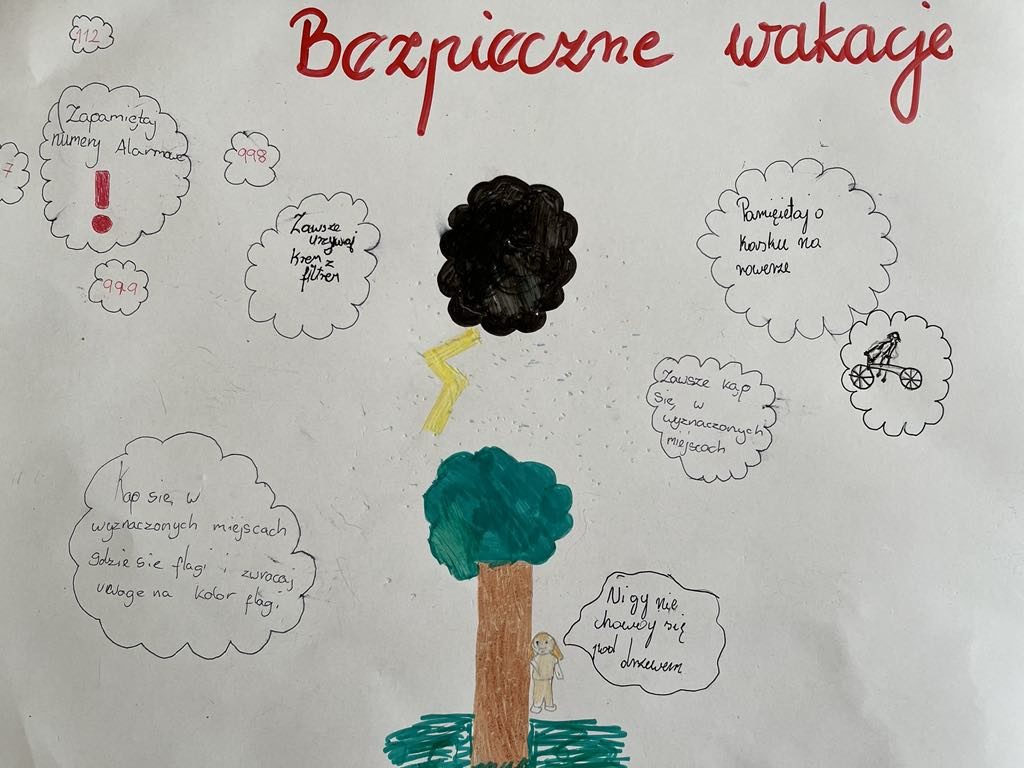 Bezpieczne wakacje
112
Zapamiętaj
numery Alarmowe
998
7
999
Zawsze
używaj
krem z
filtrem
Pamięietaj o
kasku na
rowerze
Zawsze kąp
się, w
wyznaczonych
miejscach
Kąp się, w
wyznaczonych miejscach
gdzie sie flagi i zwrocaj
uwage na kolor flagi
Nigy nie
chowaj się
pod drzewem